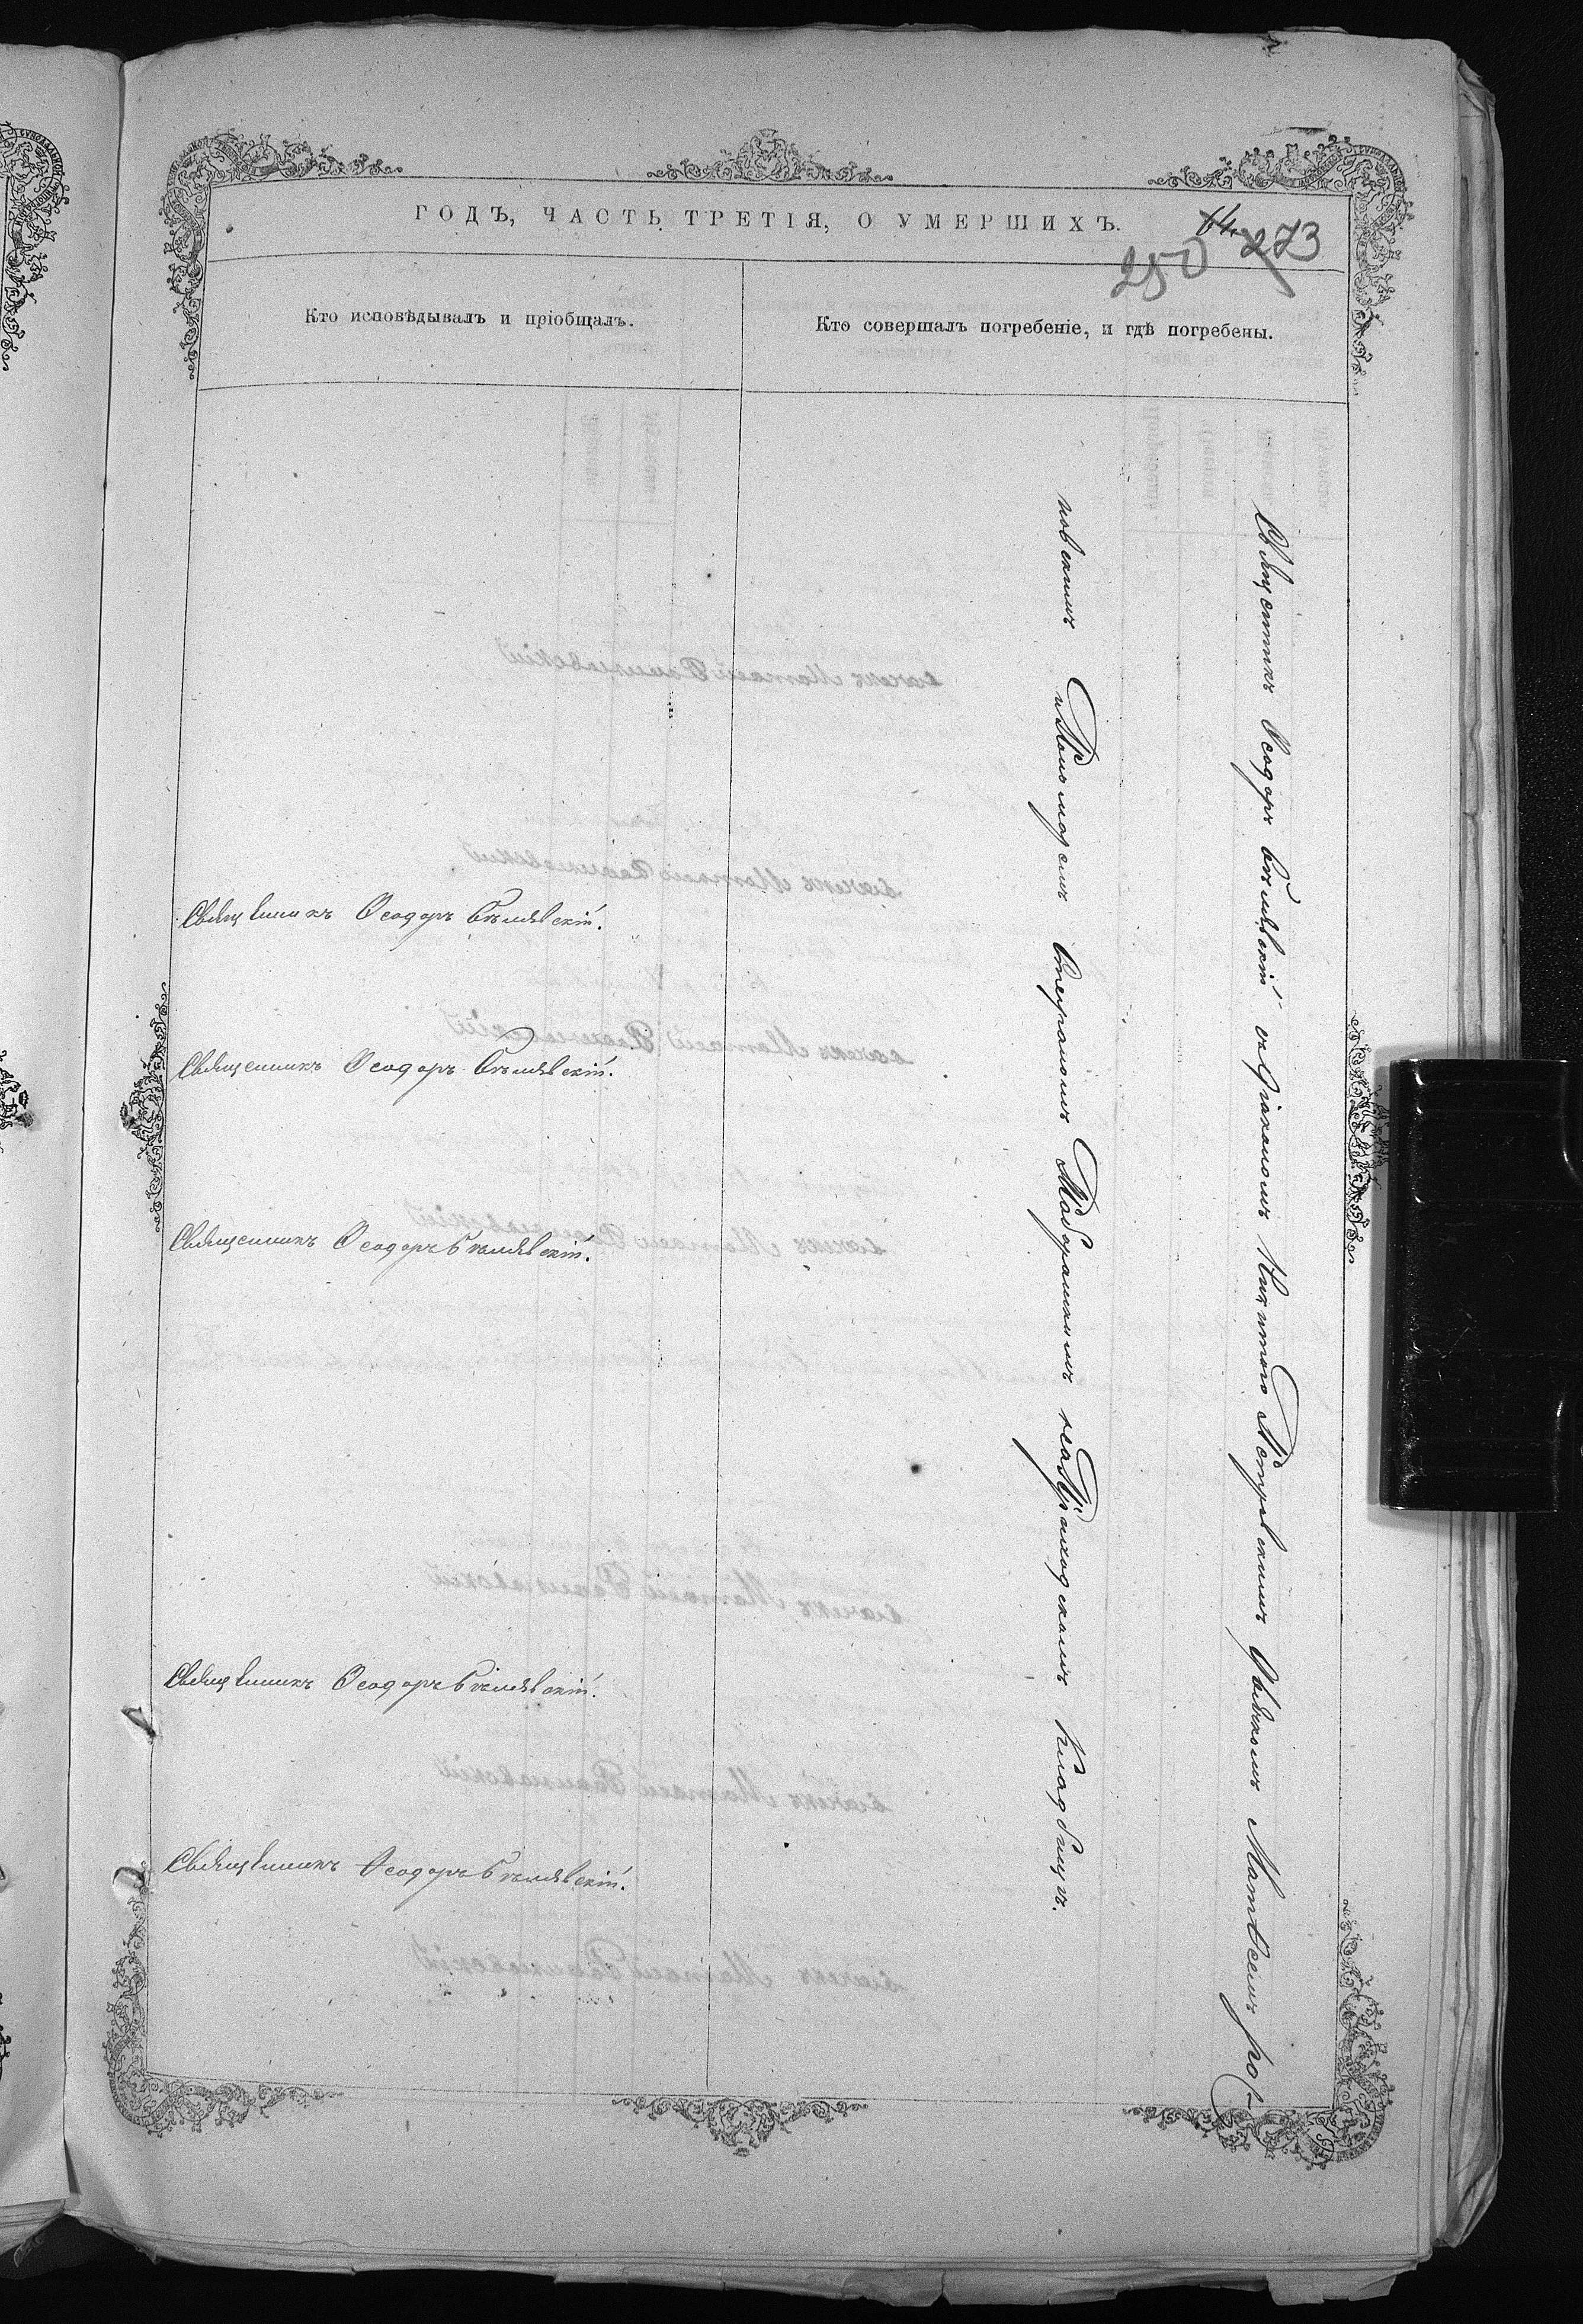 ГОДЪ, ЧАСТЬ ТРЕТІЯ, О УМЕРШИХЪ.
64. 273
250
Кто исповѣдывалъ и пріобщалъ.
Кто совершалъ погребеніе, и гдѣ погребены.
Священникъ Ѳеодоръ Бѣлявскій.
Священникъ Ѳеодоръ Бѣлявскій.
Священникъ Ѳеодоръ Бѣлявскій.
Священникъ Ѳеодоръ Бѣлявскій.
Священникъ Ѳеодоръ Бѣлявскій.
Священникъ Ѳеодоръ Бѣлявскій съ діакономъ Никитою Петровскимъ дьячкомъ Матвеемъ
новскимъ и Пономаремъ Стефаномъ на Приходскомъ Кладбищѣ.